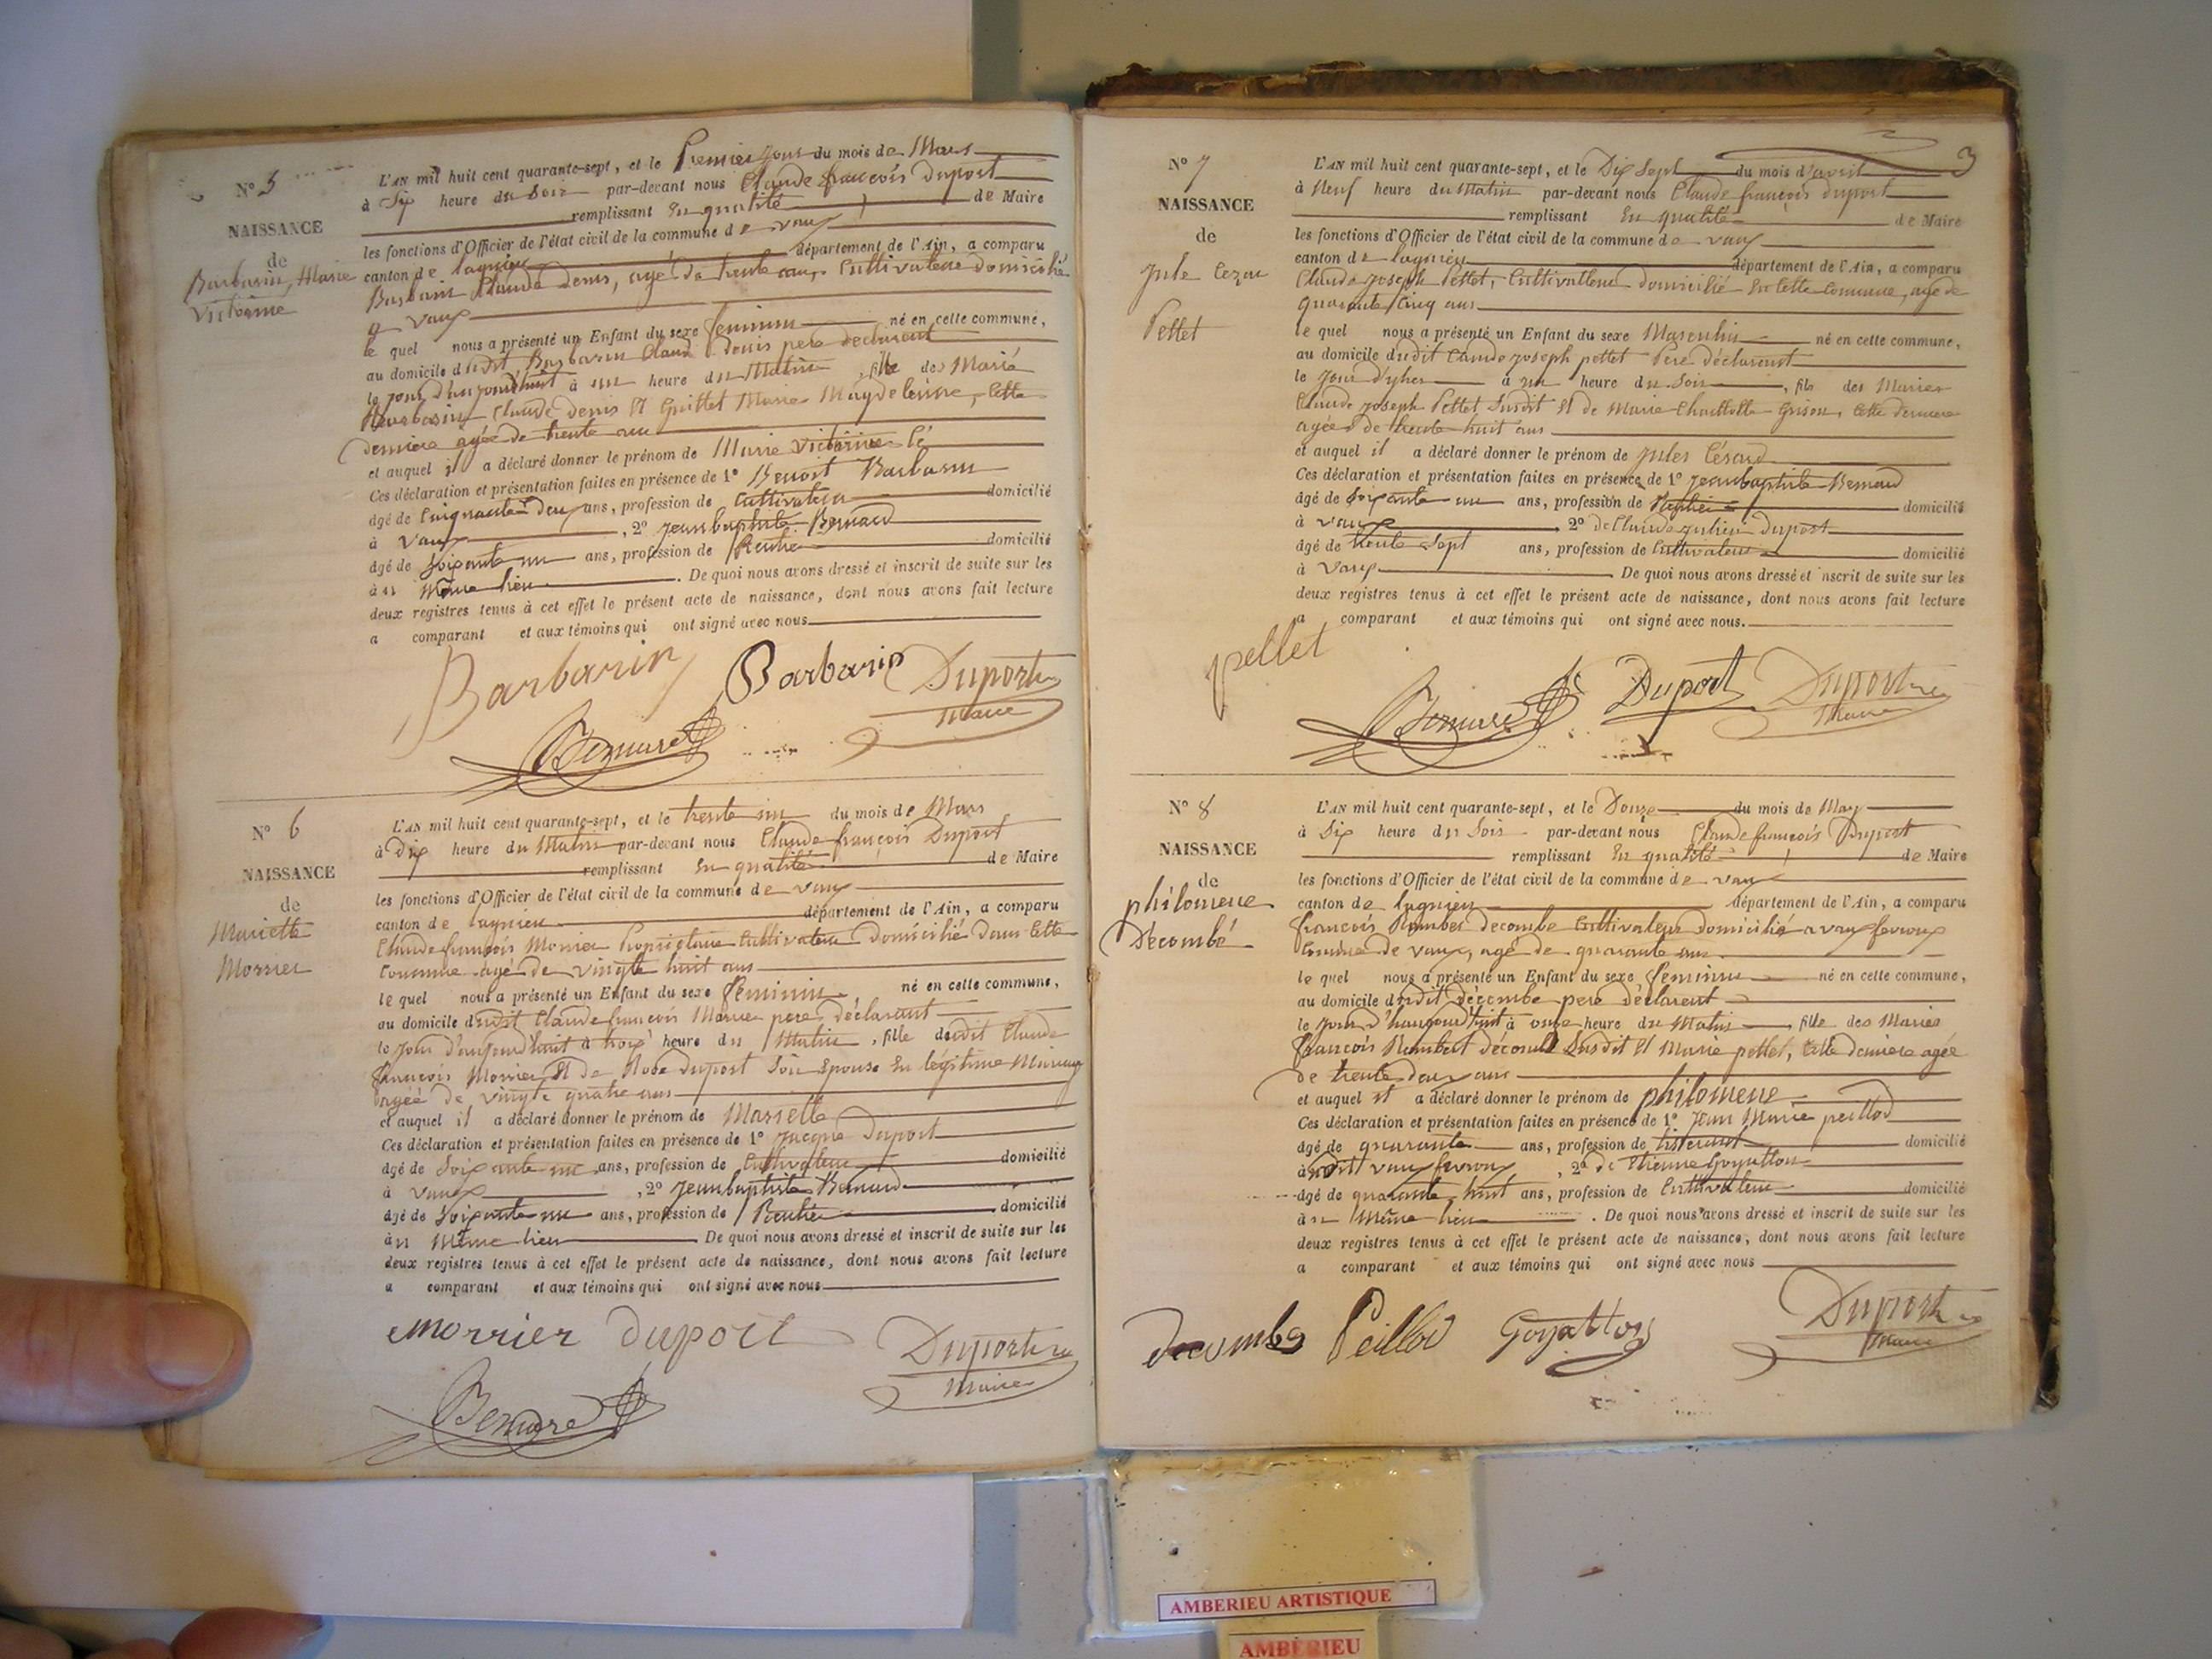 N° 5
NAISSANCE
de
Barbarin, Marie
Victorine
L'AN mil huit cent quarante-sept, et le Premier jour du mois de Mars
à Six heure du Soir par-devant nous Claude françois Duport
remplissant En qualité de Maire
les fonctions d'Officier de l'état civil de la commune de vaux
canton de lagnieu département de l'Ain, a comparu
Barbarin Claude Denis, agé de trente ans, Cultivateur domicilié
a vaux
le quel nous a présenté un Enfant du sexe feminin né en cette commune,
au domicile dudit Barbarin Claude denis pere declarant
le jour d'aujourd'huit à une heure du Matin, fille des Marié
Barbarin Claude denis Et Guillet Marie Magdeleine, Cette
derniere agée de trente ans
et auquel il a déclaré donner le prénom de Marie Victorine
Ces déclaration et présentation faites en présence de 1° Benoit Barbarin
âgé de Cinquante Deux ans, profession de Cultivateur domicilié
à Vaux, 2° Jeanbaptiste Bernard
âgé de Soixante un ans, profession de Rentier domicilié
au Même lieu. De quoi nous avons dressé et inscrit de suite sur les
deux registres tenus à cet effet le présent acte de naissance, dont nous avons fait lecture
a comparant et aux témoins qui ont signé avec nous
Barbarin Barbarin Duport
Maire
Bernard
N° 6
NAISSANCE
de
Mariette
Morrier
L'AN mil huit cent quarante-sept, et le trente un du mois de Mars
à dix heure du Matin par-devant nous Claude françois Duport
remplissant En qualité de Maire
les fonctions d'Officier de l'état civil de la commune de vaux
canton de lagnieu département de l'Ain, a comparu
Claude françois Morrier Propriétaire Cultivateur Domicilié Dans Cette
Commune agé de vingte huit ans
le quel nous a présenté un Enfant du sexe feminin né en cette commune,
au domicile dudit Claude francois Morrier pere déclarant
le jour d'aujourd'huit à trois heure du Matin, fille dudit Claude
francois Morrier Et de Duport Son Epouse En légitime Mariage
agéé de vingte quatre ans
et auquel il a déclaré donner le prénom de Mariette
Ces déclaration et présentation faites en présence de 1° Jacque Duport
âgé de Soixante un ans, profession de Cultivateur domicilié
à vaux, 2° Jeanbaptiste Bernard
âgé de Soixante un ans, profession de Rentier domicilié
au Même lieu De quoi nous avons dressé et inscrit de suite sur les
deux registres tenus à cet effet le présent acte de naissance, dont nous avons fait lecture
a comparant et aux témoins qui ont signé avec nous
Morrier duport Duport
Maire
Bernard
3
N° 7
NAISSANCE
de
Jule Cezar
Pellet
L'AN mil huit cent quarante-sept, et le Dix Sept du mois d'avril
à Neuf heure du Matin par-devant nous Claude françois duport
remplissant En qualité de Maire
les fonctions d'Officier de l'état civil de la commune de vaux
canton de lagnieu département de l'Ain, a comparu
Claude Joseph Pellet, Cultivateur domicilié En Cette Commune, agé de
quarante Cinq ans
le quel nous a présenté un Enfant du sexe Masculin né en cette commune,
au domicile dudit Claude Joseph pellet Pere déclarant
le Jour d'yher à un heure du Soir, fils des Mariés
Claude Joseph Pellet Susdit Et de Marie Charlotte Grison, Cette derniere
agée de trente huit ans
et auquel il a déclaré donner le prénom de Jules Césard
Ces déclaration et présentation faites en présence de 1° Jeanbaptiste Bernard
âgé de Soixante un ans, profession de Rentier domicilié
à vaux 2° de Claude Julien Duport
âgé de trente Sept ans, profession de Cultivateur domicilié
à Vaux De quoi nous avons dressé et inscrit de suite sur les
deux registres tenus à cet effet le présent acte de naissance, dont nous avons fait lecture
a comparant et aux témoins qui ont signé avec nous.
pellet
Bernard Duport Duport
Maire
N° 8
NAISSANCE
de
philomene
Decombe
L'AN mil huit cent quarante-sept, et le Douze du mois de May
à Six heure du Soir par-devant nous Claude francois Duport
remplissant En qualité de Maire
les fonctions d'Officier de l'état civil de la commune de vaux
canton de lagnieu département de l'Ain, a comparu
francois Rambert Decombe Cultivateur domicilié a vaux fevroux
Comune de vaux, agé de quarante ans
le quel nous a présenté un Enfant du sexe feminin né en cette commune,
au domicile dudit décombe pere déclarent
le Jour d'haujourd'huit à onze heure du Matin, fille des Mariés
francois Rambert décombe Susdit Et Marie pellet, Cette derniere agée
de trente deux ans
et auquel il a déclaré donner le prénom de philomene
Ces déclaration et présentation faites en présence de 1° Jean Marie peillod
âgé de quarante ans, profession de tisserand domicilié
audit vaux fevroux, 2° de Etienne Goyatton
âgé de quarante huit ans, profession de Cultivateur domicilié
au Même lieu. De quoi nous avons dressé et inscrit de suite sur les
deux registres tenus à cet effet le présent acte de naissance, dont nous avons fait lecture
a comparant et aux témoins qui ont signé avec nous
Decombe Peillod Goyatton Duport
Maire
AMBERIEU ARTISTIQUE
AMBÉRIEU